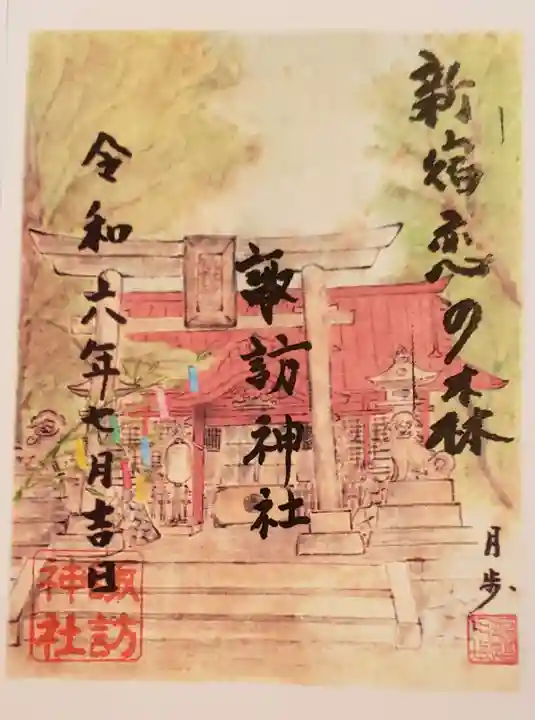 新宿恋の森
諏訪神社
令和六年七月吉日
月歩
諏訪
神社